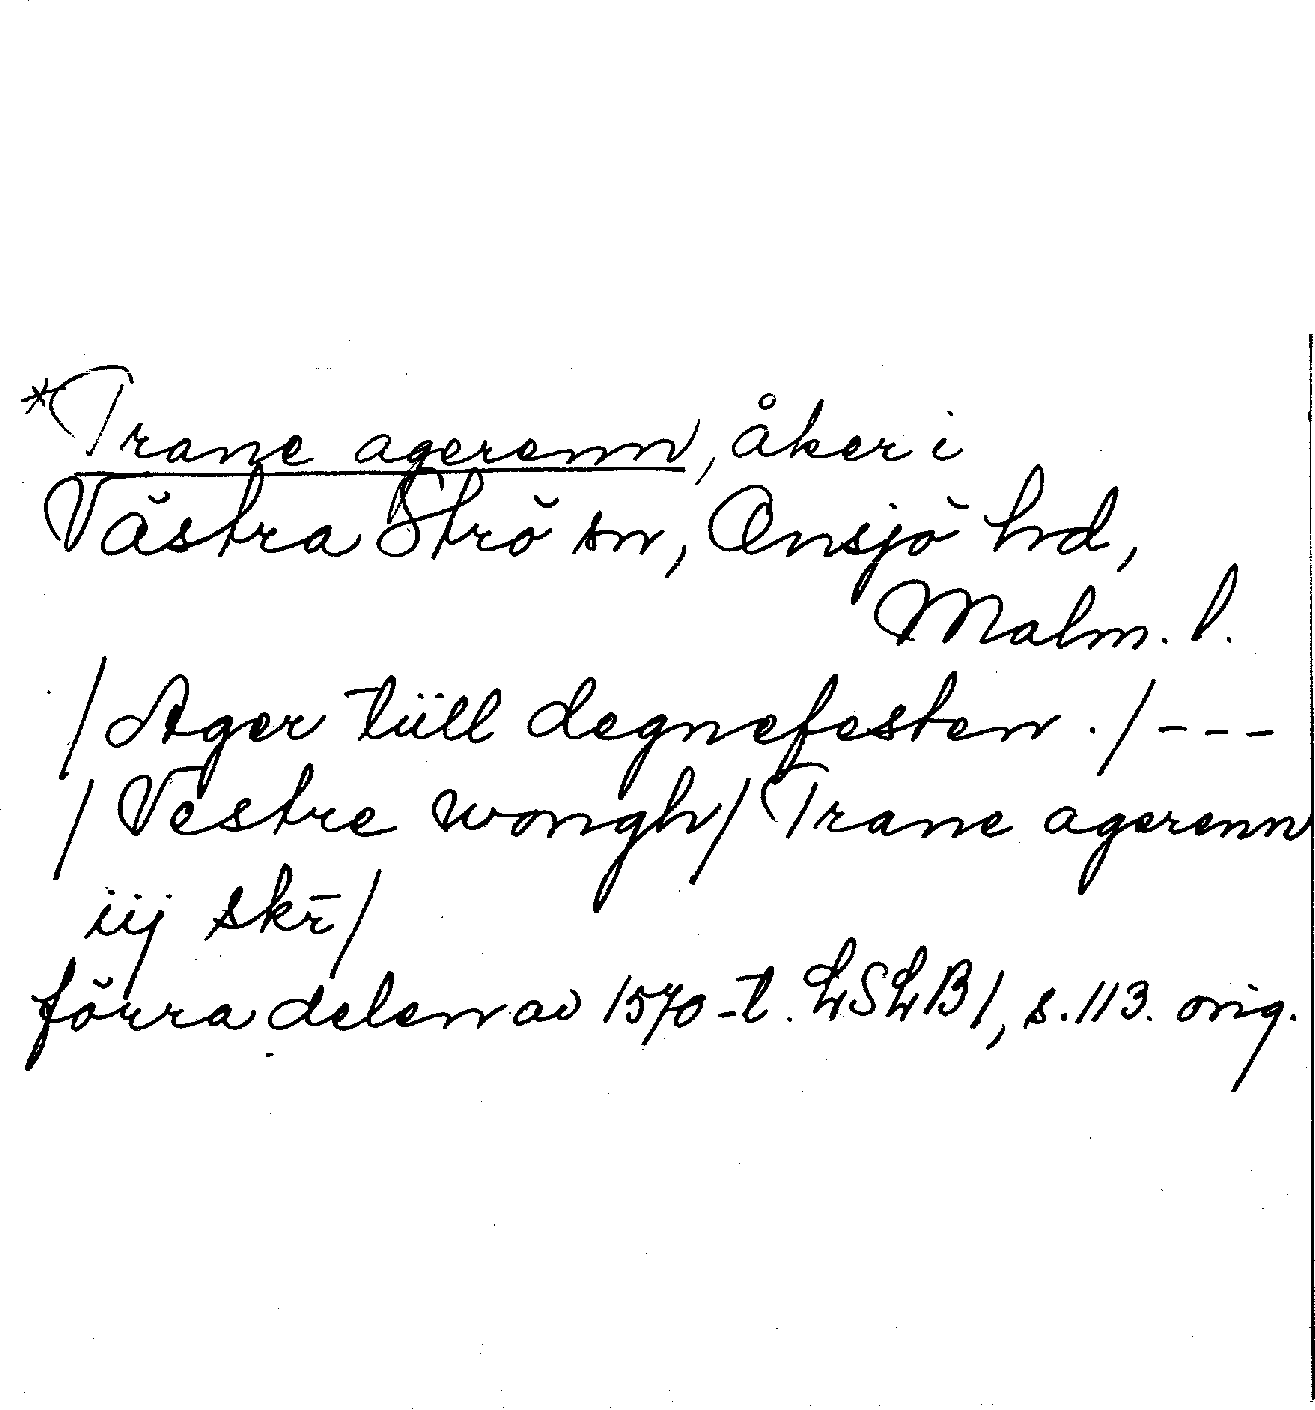 *Trane agerenn, åker i
Västra Strö sn, Onsjö hd,
Malm. l.
/Ager tüll degnefesten./---
/Vestre wongh/Trane agerenn
iij skr̄/
förra delen av 1570-t. LSLB1, s.113. orig.